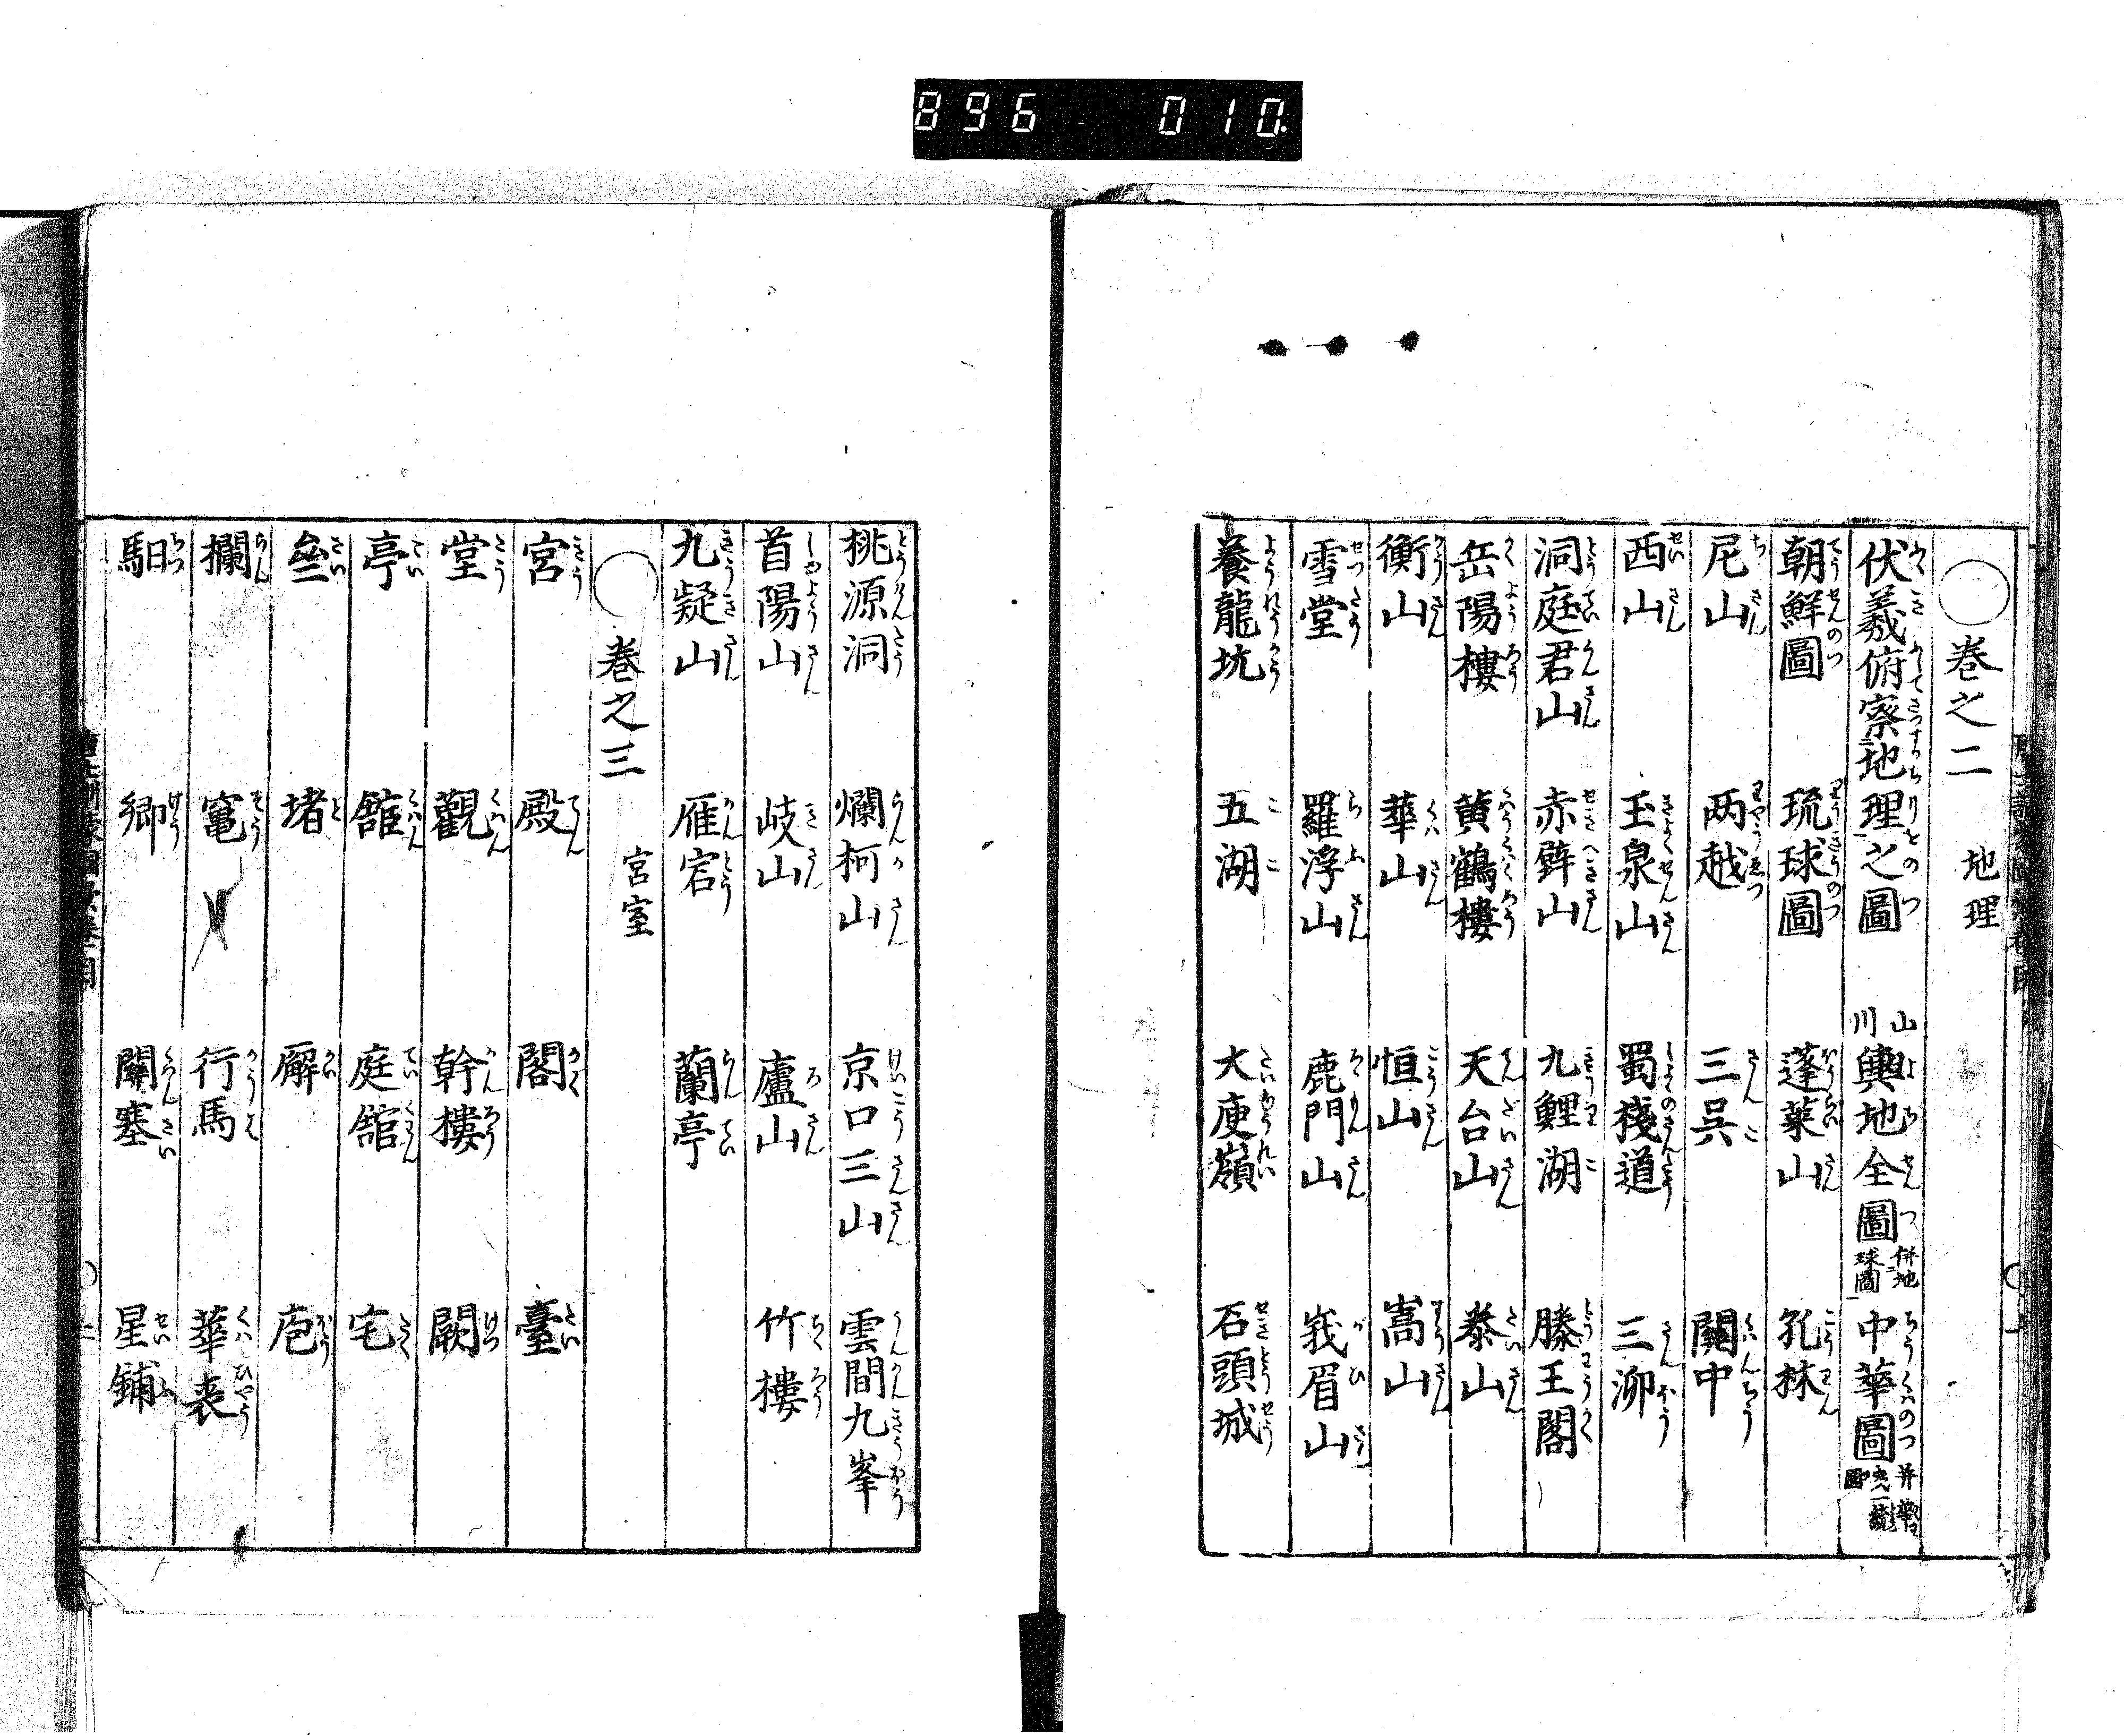 896 010
○巻之二 地理
伏羲俯察地理之圖 山川輿地全圖 併地球圖 中華圖
朝鮮圖 琉球圖 蓬莱山 孔林
尼山 两越 三呉 關中
西山 玉泉山 蜀棧道 三泖
洞庭君山 赤壁山 九鯉湖 滕王閣
岳陽樓 黄鶴樓 天台山 泰山
衡山 華山 恒山 嵩山
雪堂 羅浮山 鹿門山 峩眉山
養龍坑 五湖 大庾嶺 石頭城
桃源洞 爛柯山 京口三山 雲間九峯
首陽山 岐山 廬山 竹樓
九疑山 雁宕 蘭亭
○巻之三 宮室
宮 殿 閣 臺
堂 觀 幹樓 闕
亭 館 庭舘 宅
堵 廨 庖
欄 竃 行馬 華表
馹 郷 關塞 星鋪